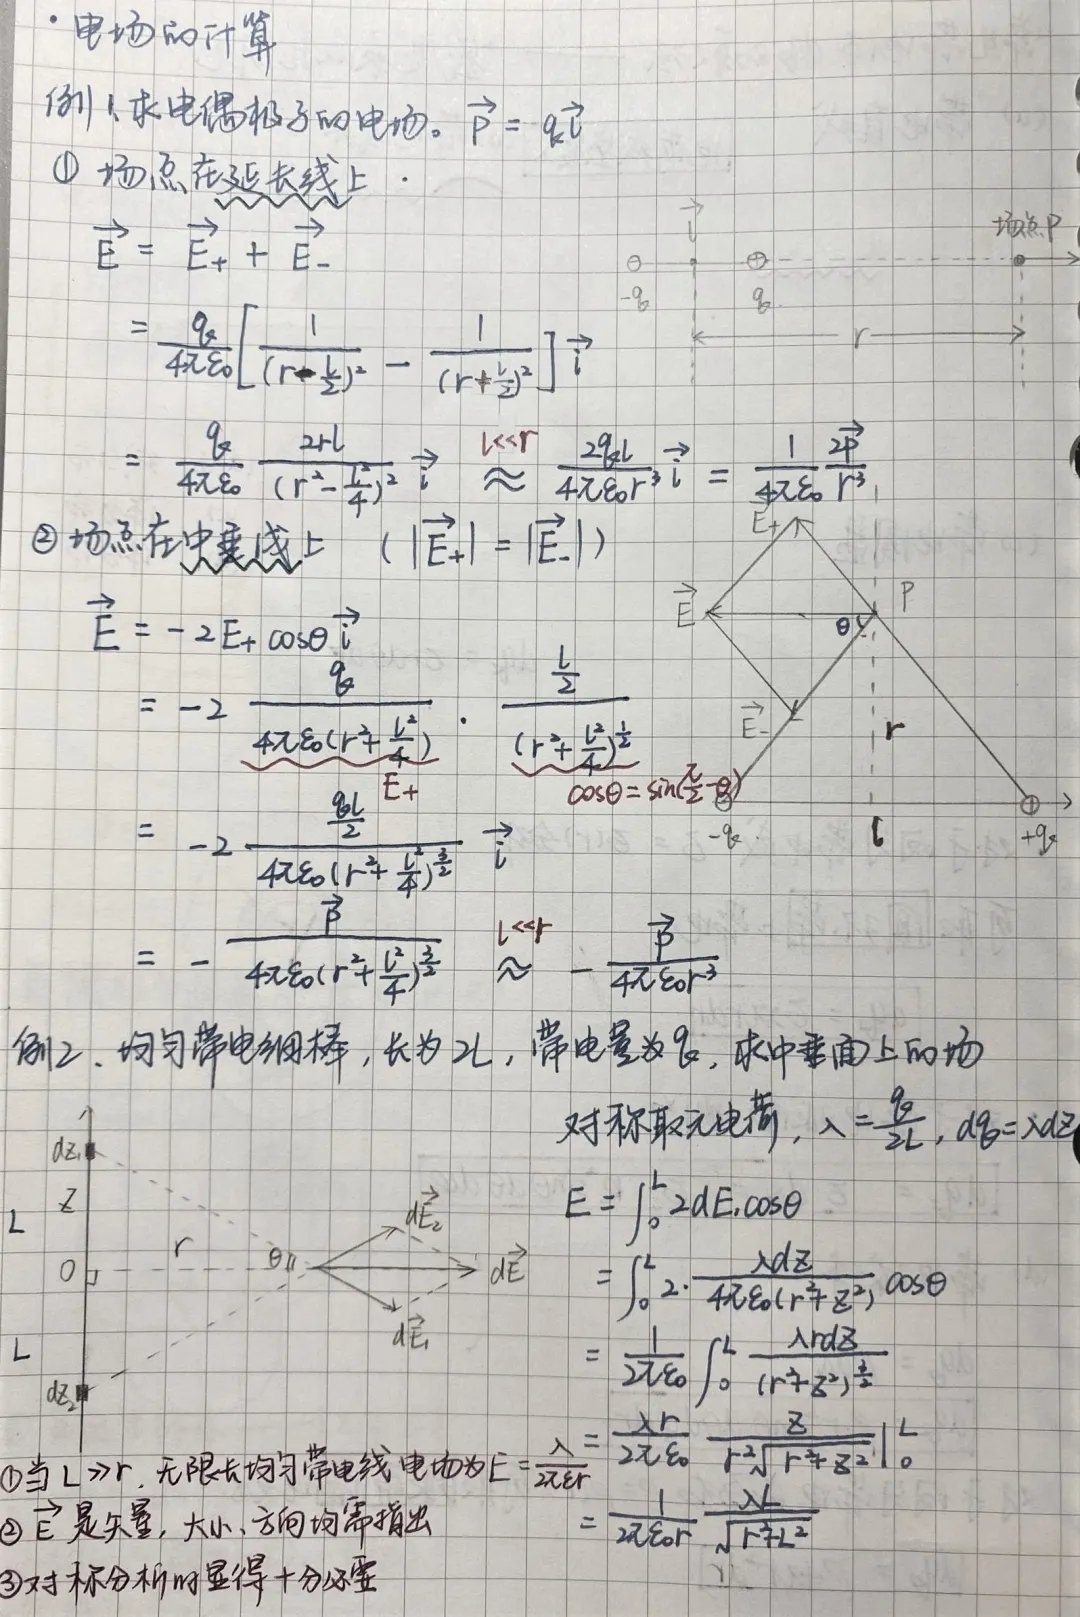 · 电场的计算
例1、求电偶极子的电场。 \vec{P} = q\vec{l}
① 场点在延长线上
\vec{E} = \vec{E_+} + \vec{E_-}
= \frac{q}{4πε_0} [ \frac{1}{(r-\frac{l}{2})^2} - \frac{1}{(r+\frac{l}{2})^2} ] \vec{i}
= \frac{q}{4πε_0} \frac{2rl}{(r^2-\frac{l^2}{4})^2} \vec{i} \overset{l<<r}{≈} \frac{2ql}{4πε_0r^3} \vec{i} = \frac{1}{4πε_0} \frac{2\vec{P}}{r^3}
\vec{l} 场点P
-q q
r
② 场点在中垂线上 (|\vec{E_+}| = |\vec{E_-}|)
\vec{E} = -2E_+ cosθ \vec{i}
= -2 \frac{q}{4πε_0(r^2+\frac{l^2}{4})} · \frac{\frac{l}{2}}{(r^2+\frac{l^2}{4})^{\frac{1}{2}}}
E_+ cosθ = sin(\frac{π}{2}-θ)
= -2 \frac{\frac{ql}{2}}{4πε_0(r^2+\frac{l^2}{4})^{\frac{3}{2}}} \vec{i}
= - \frac{\vec{P}}{4πε_0(r^2+\frac{l^2}{4})^{\frac{3}{2}}} \overset{l<<r}{≈} - \frac{\vec{P}}{4πε_0r^3}
\vec{E_+}
\vec{E} P
θ
\vec{E_-} r
-q l +q
例2、均匀带电细棒，长为2L，带电量为q，求中垂面上的场
对称取元电荷，λ = \frac{q}{2L}, dq = λdz
E = \int_0^L 2dE_1cosθ
= \int_0^L 2· \frac{λdz}{4πε_0(r^2+z^2)} cosθ
= \frac{1}{2πε_0} \int_0^L \frac{λrdz}{(r^2+z^2)^{\frac{3}{2}}}
= \frac{λr}{2πε_0} \frac{z}{r^2\sqrt{r^2+z^2}} |_0^L
= \frac{1}{2πε_0r} \frac{λL}{\sqrt{r^2+L^2}}
dz_1
z
L
r θ
O
L
dz_2
d\vec{E_2}
d\vec{E}
d\vec{E_1}
①当L≫r，无限长均匀带电线电场为E = \frac{λ}{2πεr}
② \vec{E} 是矢量，大小、方向均需指出
③对称分析时显得十分必要